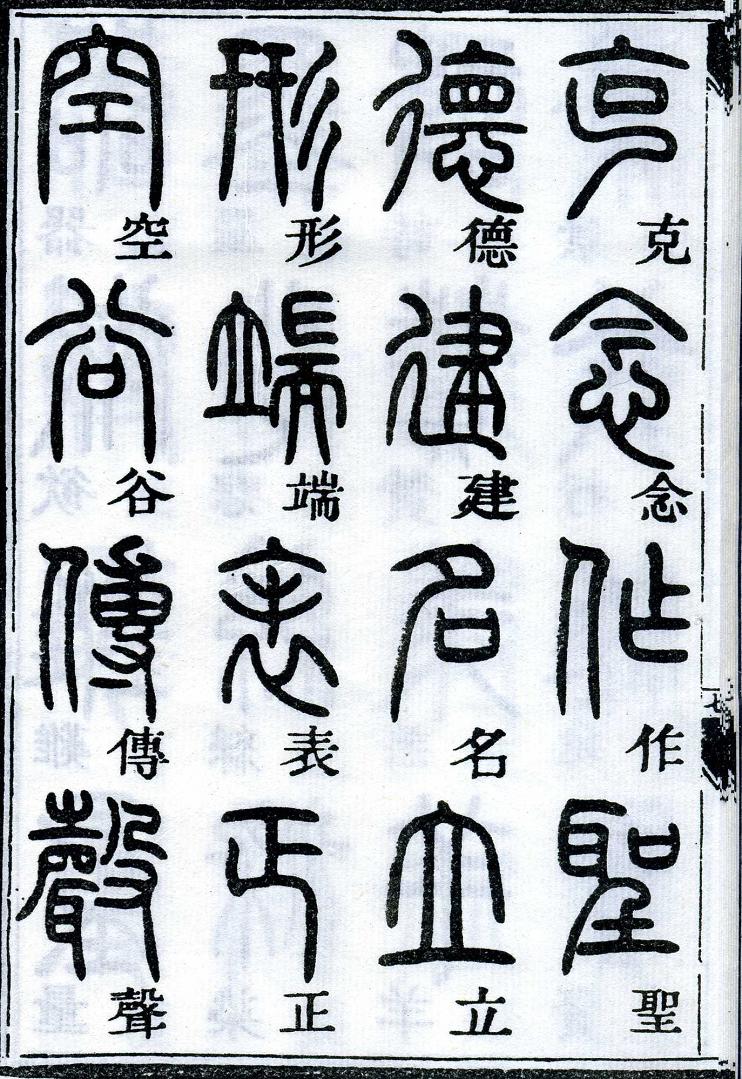 克念作聖
德建名立
形端表正
空谷傳聲